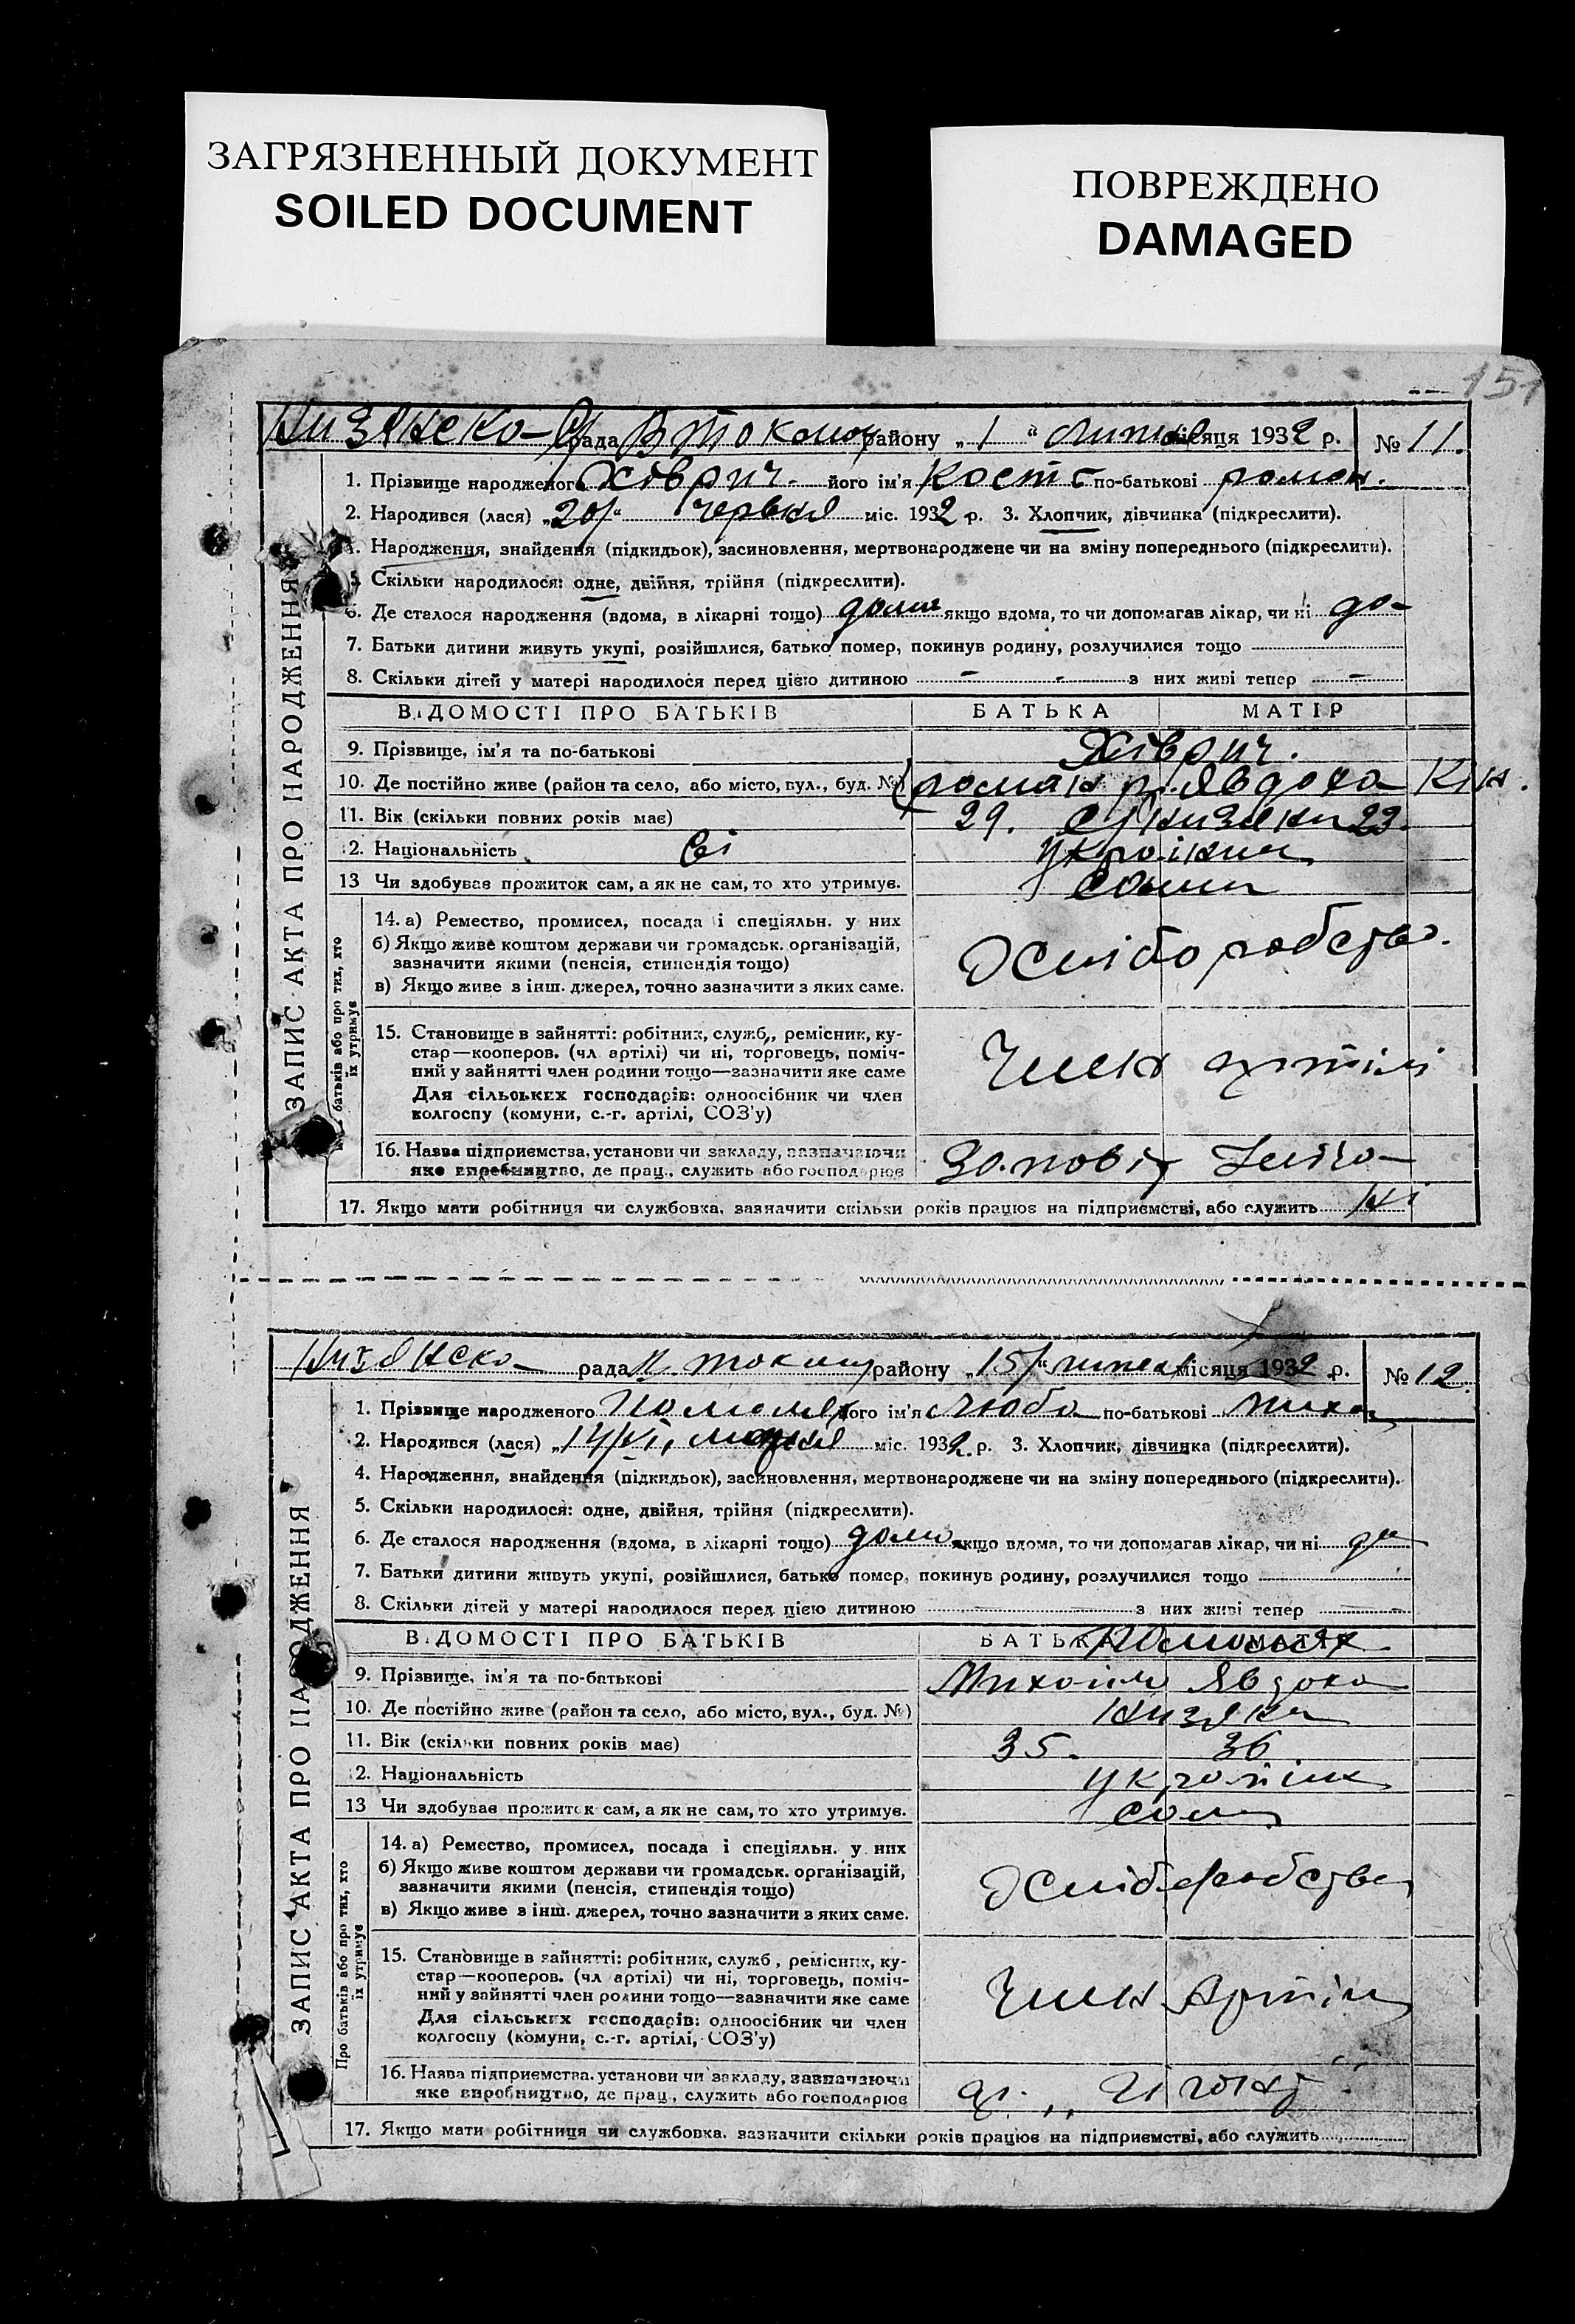 ЗАГРЯЗНЕННЫЙ ДОКУМЕНТ
SOILED DOCUMENT
ПОВРЕЖДЕНО
DAMAGED
151
Низянско- рада В Токмац району „1“ липня місяця 1932 р. № 11.
ЗАПИС АКТА ПРО НАРОДЖЕННЯ
1. Прізвище народженого Хіврич. його ім'я Кость по-батькові роман.
2. Народився (лася) „20“ червня міс. 1932 р. 3. Хлопчик, дівчинка (підкреслити).
4. Народження, знайдення (підкидьок), засиновлення, мертвонароджене чи на зміну попереднього (підкреслити).
5. Скільки народилося: одне, двійня, трійня (підкреслити).
6. Де сталося народження (вдома, в лікарні тощо) дома якщо вдома, то чи допомагав лікар, чи ні
7. Батьки дитини живуть укупі, розійшлися, батько помер, покинув родину, розлучилися тощо
8. Скільки дітей у матері народилося перед цією дитиною - - з них живі тепер -
ВІДОМОСТІ ПРО БАТЬКІВ БАТЬКА МАТІР
9. Прізвище, ім'я та по-батькові Хіврич.
10. Де постійно живе (район та село, або місто, вул., буд. №) роман Явдоха
11. Вік (скільки повних років має) 29. с Низяни 29.
12. Національність Всі українци
13 Чи здобував прожиток сам, а як не сам, то хто утримув. сами
батьків або про тих, хто їх утримує
14. а) Ремество, промисел, посада і спеціяльн. у них
б) Якщо живе коштом держави чи громадськ. організацій,
зазначити якими (пенсія, стипендія тощо)
в) Якщо живе з інш. джерел, точно зазначити з яких саме.
Хлібо робство.
15. Становище в зайнятті: робітник, служб., ремісник, ку-
стар—кооперов. (чл. артілі) чи ні, торговець, поміч-
ний у зайнятті член родини тощо—зазначити яке саме
Для сільських господарів: одноосібник чи член
колгоспу (комуни, с.-г. артілі, СОЗ'у)
Член артілі
16. Назва підприємства, установи чи закладу, зазначаючи
яке виробництво, де прац., служить або господарює
Заповіт Ілліча
17. Якщо мати робітниця чи службовка, зазначити скільки років працює на підприємстві, або служить ні
Низянско- рада В. токмац району „15“ липня місяця 1932 р. № 12.
ЗАПИС АКТА ПРО НАРОДЖЕННЯ
1. Прізвище народженого його ім'я Люба по-батькові миха
2. Народився (лася) міс. 1932 р. 3. Хлопчик, дівчинка (підкреслити).
4. Народження, знайдення (підкидьок), засиновлення, мертвонароджене чи на зміну попереднього (підкреслити).
5. Скільки народилося: одне, двійня, трійня (підкреслити).
6. Де сталося народження (вдома, в лікарні тощо) дома якщо вдома, то чи допомагав лікар, чи ні
7. Батьки дитини живуть укупі, розійшлися, батько помер, покинув родину, розлучилися тощо
8. Скільки дітей у матері народилося перед цією дитиною з них живі тепер
ВІДОМОСТІ ПРО БАТЬКІВ БАТЬКА МАТІР
9. Прізвище, ім'я та по-батькові Михайло Явдоха
10. Де постійно живе (район та село, або місто, вул., буд. №) Низяни
11. Вік (скільки повних років має) 35. 36
12. Національність українц
13 Чи здобував прожиток сам, а як не сам, то хто утримув. сами
Про батьків або про тих, хто їх утримує
14. а) Ремество, промисел, посада і спеціяльн. у них
б) Якщо живе коштом держави чи громадськ. організацій,
зазначити якими (пенсія, стипендія тощо)
в) Якщо живе з інш. джерел, точно зазначити з яких саме.
Хліборобство
15. Становище в зайнятті: робітник, служб., ремісник, ку-
стар—кооперов. (чл артілі) чи ні, торговець, поміч-
ний у зайнятті член родини тощо—зазначити яке саме
Для сільських господарів: одноосібник чи член
колгоспу (комуни, с.-г. артілі, СОЗ'у)
Член Артіли
16. Назва підприємства, установи чи закладу, зазначаючи
яке виробництво, де прац., служить або господарює
17. Якщо мати робітниця чи службовка, зазначити скільки років працює на підприємстві, або служить